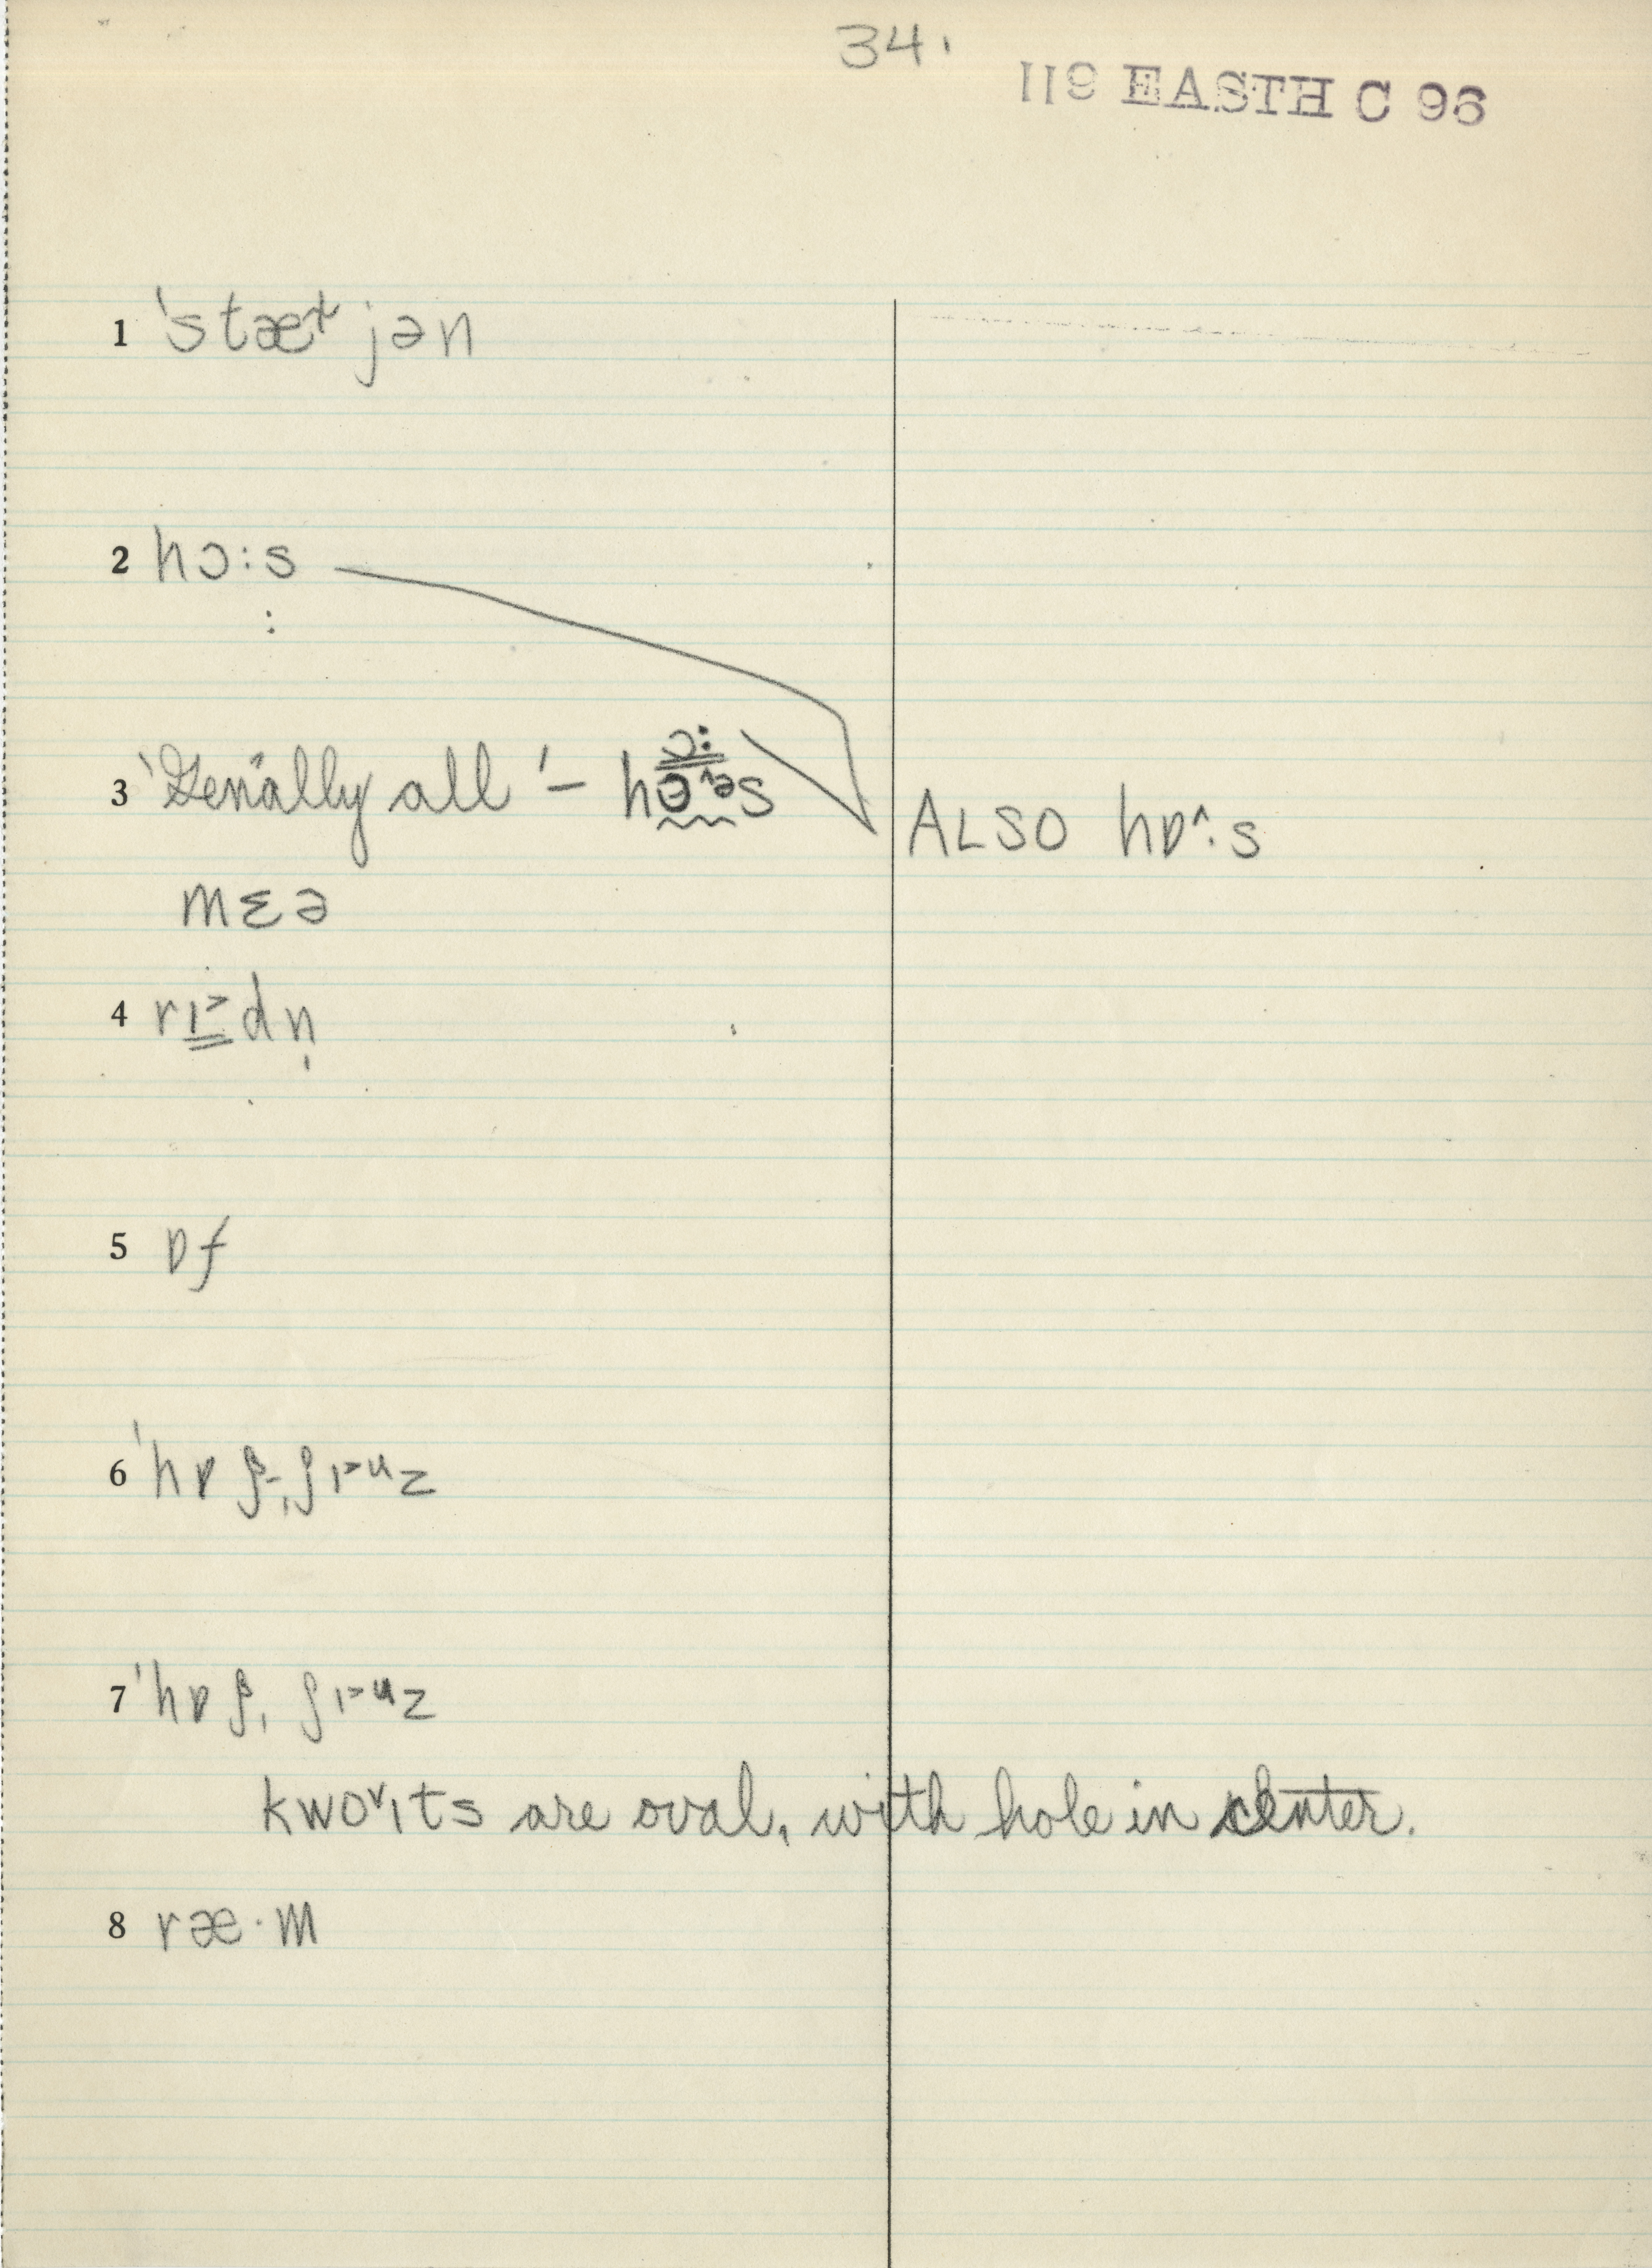 34.
119 EASTH C 96
1 ˈstæt jən
2 hɔ:s
:
3 'Gen'ally all' – hɔ:s ALSO hɒ^:s
mɛə
4 rɪ>dn̩
5 ɒf
6 'hɒ ʃ, ʃɪ>uz
7 'hɒ ʃ, ʃɪ>uz
kwoᵛɪts are oval, with hole in center.
8 ræ·m